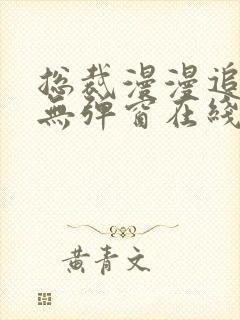 总裁漫漫追
無弹窗在线
黄青文